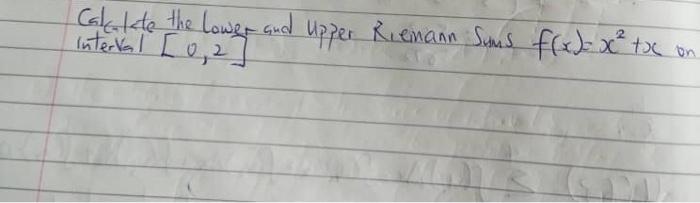 Calculate the Lower and Upper Riemann Sums f(x)=x² + x on
interval [0,2]